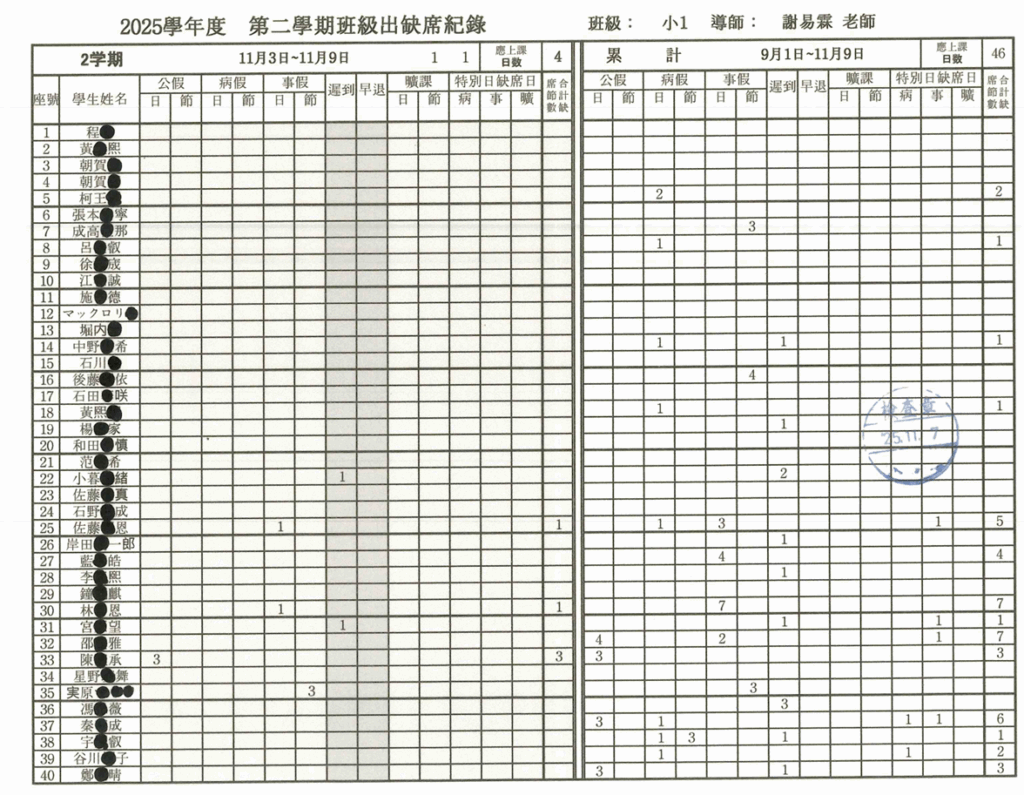 2025學年度 第二學期班級出缺席紀錄 班級： 小1 導師： 謝易霖 老師
2学期 11月3日~11月9日 1 1 應上課日数 4 累計 9月1日~11月9日 應上課日数 46
座號 學生姓名 公假 病假 事假 遲到 早退 曠課 特別日缺席日 合計缺席節數 公假 病假 事假 遲到 早退 曠課 特別日缺席日 合計缺席節數
日 節 日 節 日 節 日 節 病 事 曠 日 節 日 節 日 節 日 節 病 事 曠
1 程
2 黃 熙
3 朝賀
4 朝賀
5 柯王 2 2
6 張本 寧
7 成高 那 3
8 呂 叡 1 1
9 徐 宬
10 江 誠
11 施 德
12 マックロリ
13 堀内
14 中野 希 1 1 1
15 石川
16 後藤 依 4
17 石田 咲
18 黃熙 1 1
19 楊 家 1
20 和田 慎
21 范 希
22 小暮 緒 1 2
23 佐藤 真
24 石野 成
25 佐藤 恩 1 1 1 3 1 5
26 岸田 一郎 1
27 藍 皓 4 4
28 李 熙 1
29 鐘 麒
30 林 恩 1 1 7 7
31 宮 望 1 1 1 1
32 邵 雅 4 2 1 7
33 陳 承 3 3 3 3
34 星野 舞
35 実原 3 3
36 馮 薇 3
37 秦 成 3 1 1 1 6
38 宇 叡 1 3 1 1
39 谷川 子 1 1 2
40 鄭 晴 3 1 3
検査章
25.11.7